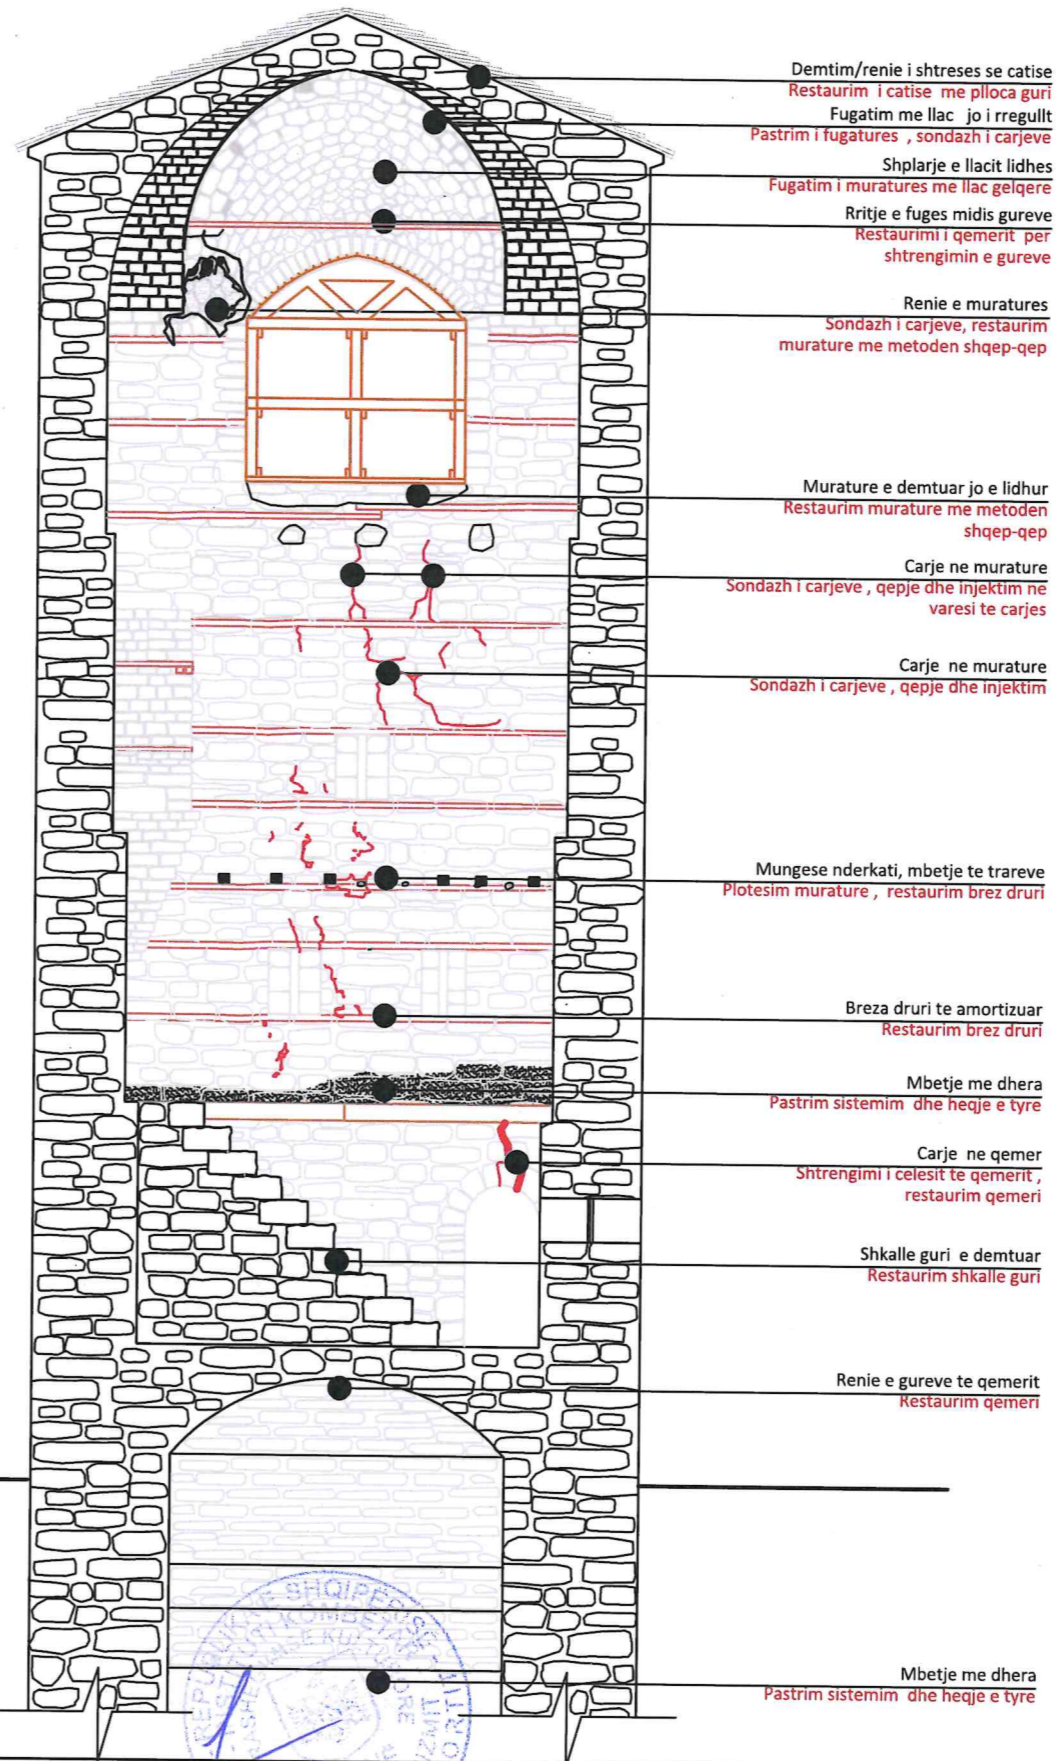 Demtim/renie i shtreses se catise
Restaurim i catise me plloca guri
Fugatim me llac jo i rregullt
Pastrim i fugatures , sondazh i carjeve
Shplarje e llacit lidhes
Fugatim i muratures me llac gelqere
Rritje e fuges midis gureve
Restaurimi i qemerit per
shtrengimin e gureve
Renie e muratures
Sondazh i carjeve, restaurim
murature me metoden shqep-qep
Murature e demtuar jo e lidhur
Restaurim murature me metoden
shqep-qep
Carje ne murature
Sondazh i carjeve , qepje dhe injektim ne
varesi te carjes
Carje ne murature
Sondazh i carjeve , qepje dhe injektim
Mungese nderkati, mbetje te trareve
Plotesim murature , restaurim brez druri
Breza druri te amortizuar
Restaurim brez druri
Mbetje me dhera
Pastrim sistemim dhe heqje e tyre
Carje ne qemer
Shtrengimi i celesit te qemerit ,
restaurim qemeri
Shkalle guri e demtuar
Restaurim shkalle guri
Renie e gureve te qemerit
Restaurim qemeri
Mbetje me dhera
Pastrim sistemim dhe heqje e tyre
REPUBLIKA E SHQIPËRISË